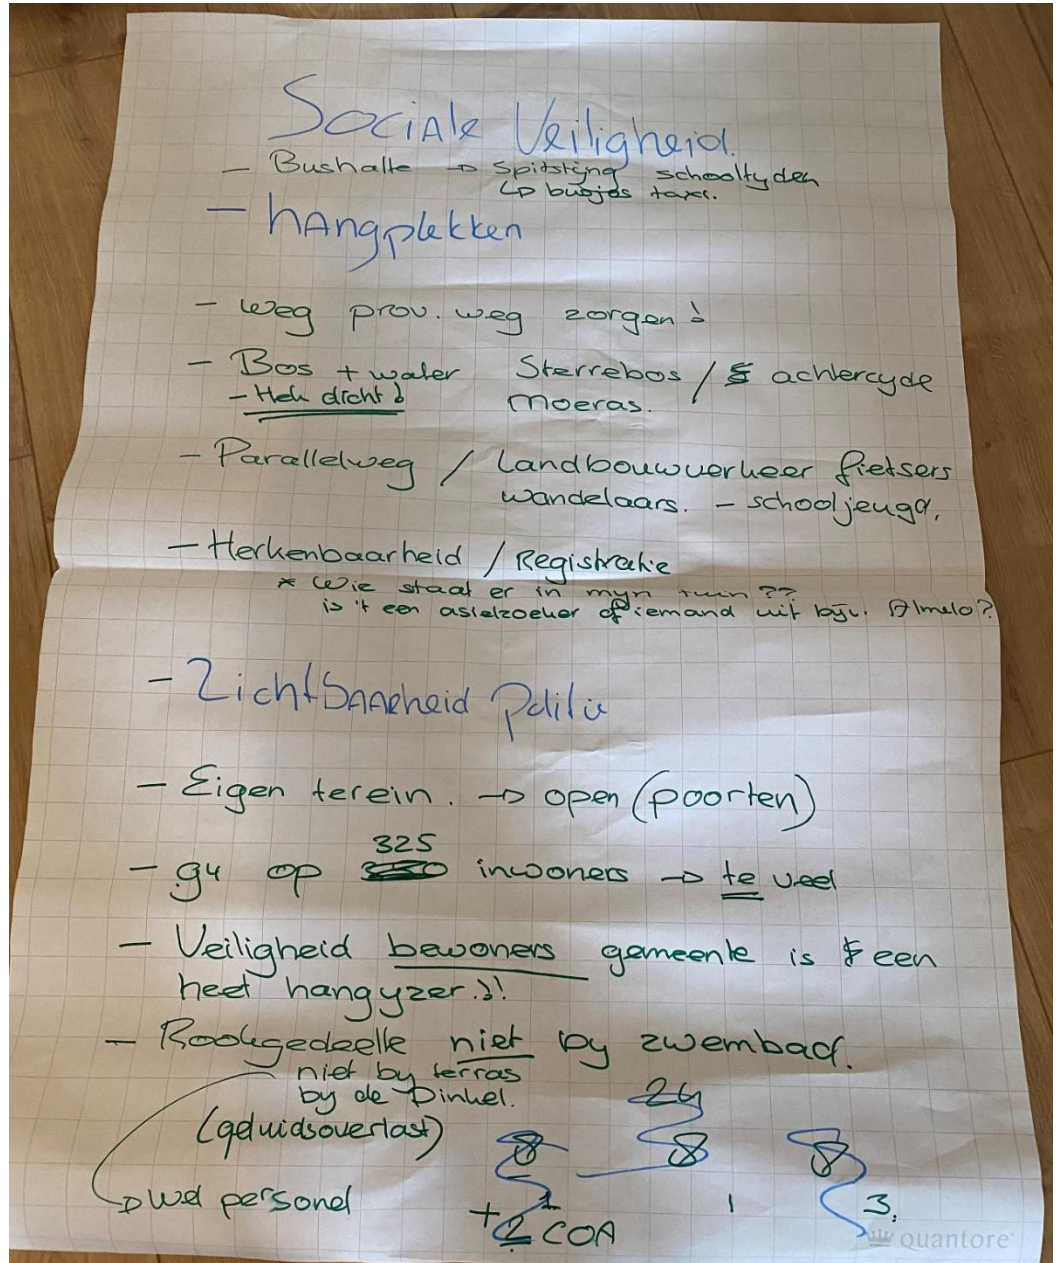 Sociale Veiligheid.
- Bushalte → Spitstyng schooltyden
↳ busjes taxi.
- hangplekken
- weg prov. weg zorgen!
- Bos + water Sterrebos / achterzyde
- Hek dicht! moeras.
- Parallelweg / Landbouwverkeer fietsers
wandelaars. - schooljeugd.
- Herkenbaarheid / Registratie
* Wie staat er in myn tuin ??
is 't een asielzoeker of iemand uit bijv. Almelo?
- Zichtbaarheid Politie
- Eigen terein. → open (poorten)
325
- 94 op inwoners → te veel
- Veiligheid bewoners gemeente is een
heet hangyzer.!!
- Rookgedeelte niet by zwembad.
niet by terras
by de Dinkel.
24
(geluidsoverlast)
8 8 8
→ wel personeel
1 1 3.
+ 2 COA
quantore